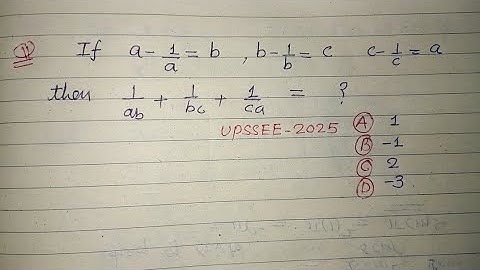 Q If a - 1/a = b , b - 1/b = c c - 1/c = a
then 1/ab + 1/bc + 1/ca = ?
UPSSEE-2025 A 1
B -1
C 2
D -3